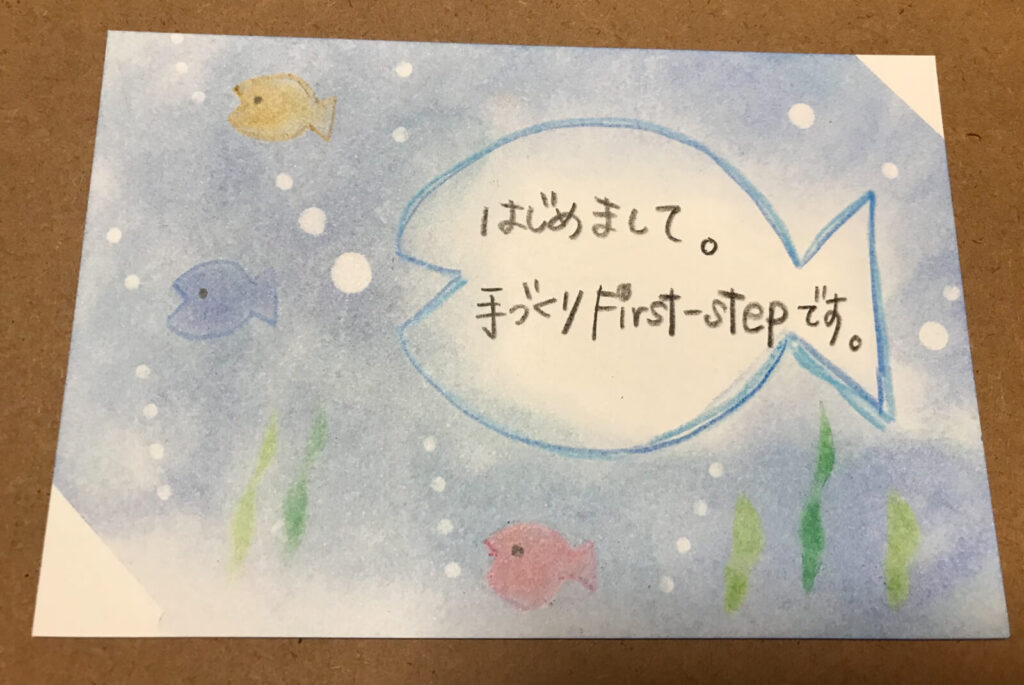 はじめまして。
手づくりFirst-stepです。